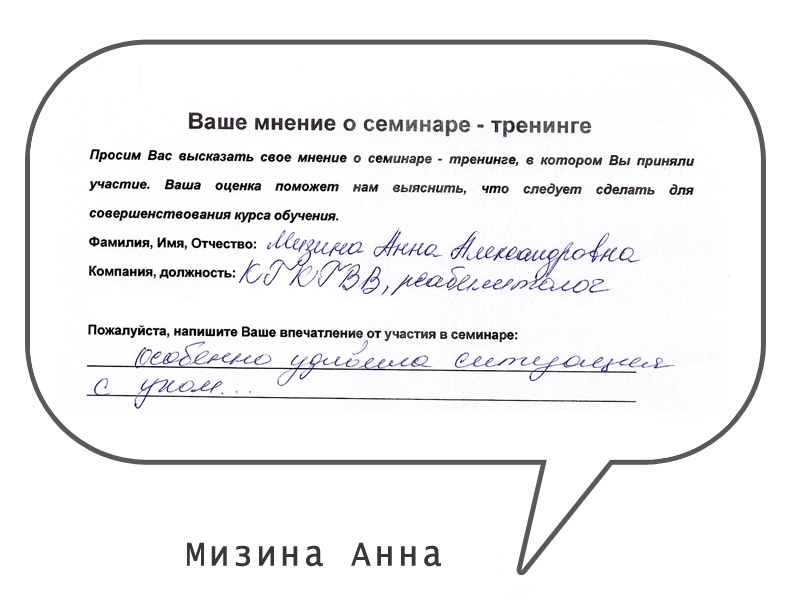 Ваше мнение о семинаре - тренинге
Просим Вас высказать свое мнение о семинаре - тренинге, в котором Вы приняли
участие. Ваша оценка поможет нам выяснить, что следует сделать для
совершенствования курса обучения.
Фамилия, Имя, Отчество: Мизина Анна Александровна
Компания, должность: КГКГВВ, реабилитолог
Пожалуйста, напишите Ваше впечатление от участия в семинаре:
Особенно удивила ситуация
с ухом...
Мизина Анна